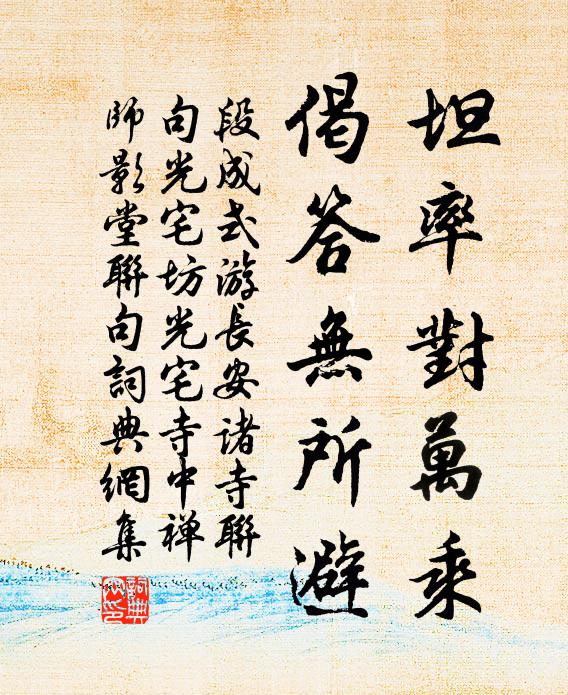 坦率對萬乘
偈答無所避
段成式游長安诸寺聯
句光宅坊光宅寺中禅
師影堂聯句詞典網集